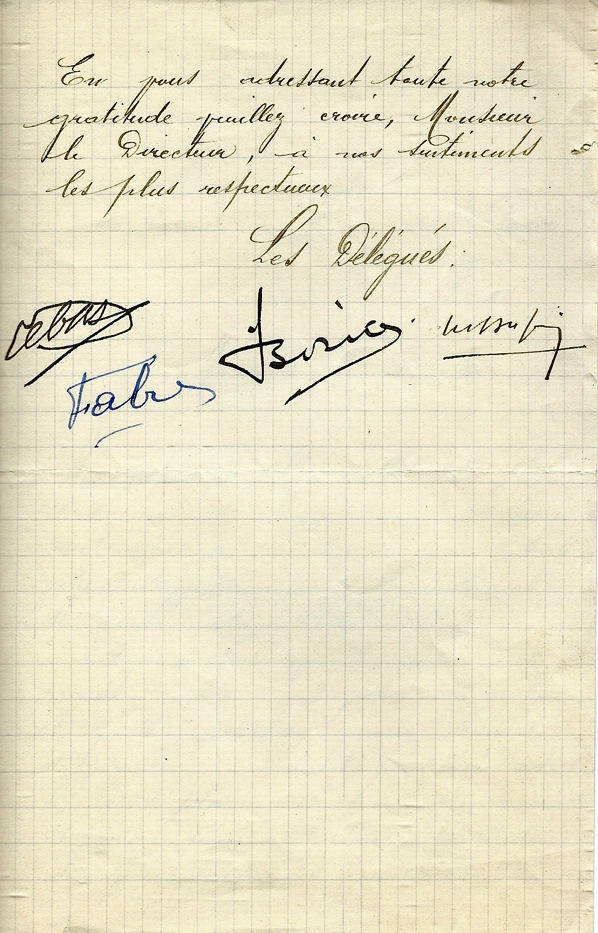 En vous adressant toute notre
gratitude veuillez croire, Monsieur
le Directeur, à nos sentiments
les plus respectueux
Les Délégués.
Debas
Fabre